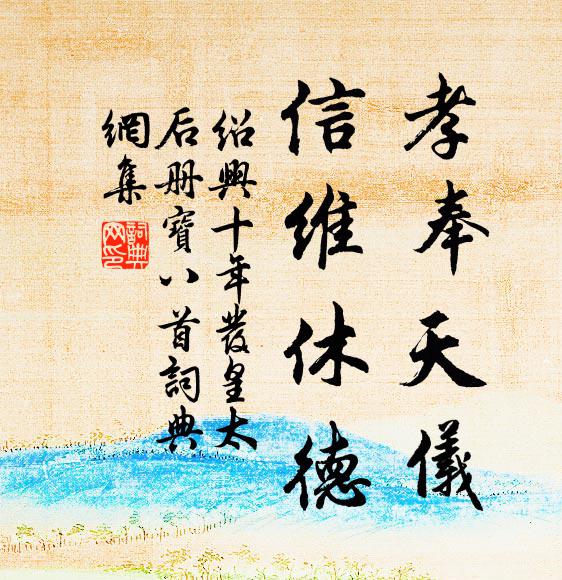 孝奉天儀
信維休德
紹興十年發皇太
后册寶八首詞典
網集
詞典網印